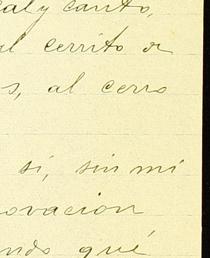 al y canto,
al cerrito de
s, al cerro
si, sin mi
ovacion
ndo qué